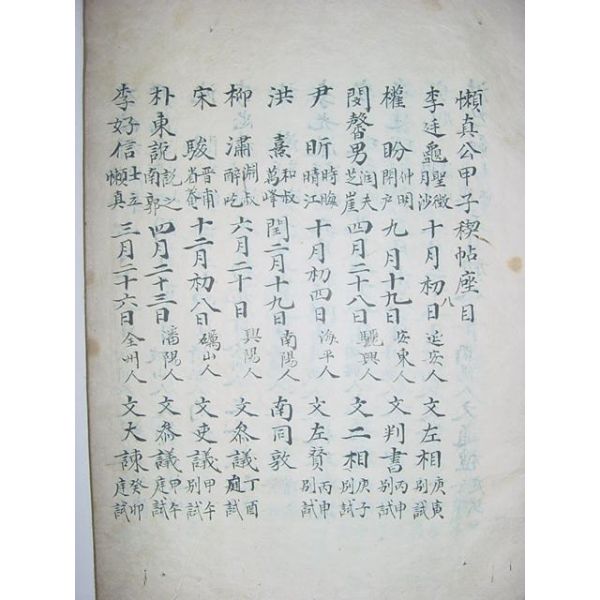 懶真公甲子稧帖座目
李廷龜 聖徵 月沙 十月初八日 延安人 文左相 庚寅 別試
權盼 仲明 閉戶 九月十九日 安東人 文判書 丙申 別試
閔馨男 潤夫 芝崖 四月二十八日 驪興人 文二相 庚子 別試
尹昕 時晦 晴江 十月初四日 海平人 文左贊 丙申 別試
洪熹 和叔 萬峰 閏二月十九日 南陽人 南同敦
柳潚 淵叔 醉吃 六月二十日 興陽人 文參議 丁酉 庭試
宋駿 晉甫 省菴 十二月初八日 礪山人 文吏議 甲午 別試
朴東說 說之 南郭 四月二十三日 潘陽人 文參議 甲午 庭試
李好信 士立 懶真 三月二十六日 全州人 文大諫 癸卯 庭試